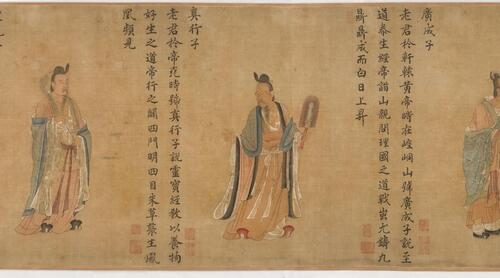 廣成子
老君於軒轅黃帝時在崆峒山號廣成子說至
道泰生經帝詣山親問理國之道戰蚩尤鑄九
鼎鼎成而白日上昇
真行子
老君於帝
時號真行子說靈寶經敎以養物
好生之道帝行之闢四門明四目朱草蘖生鳳
凰頻見